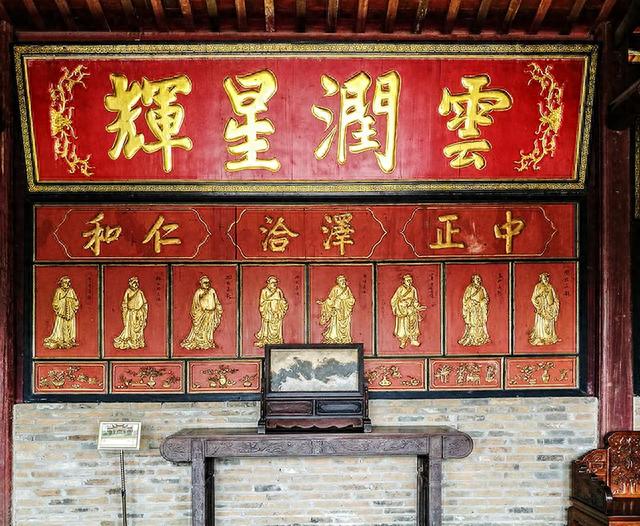 雲潤星輝
中正 澤洽 仁和